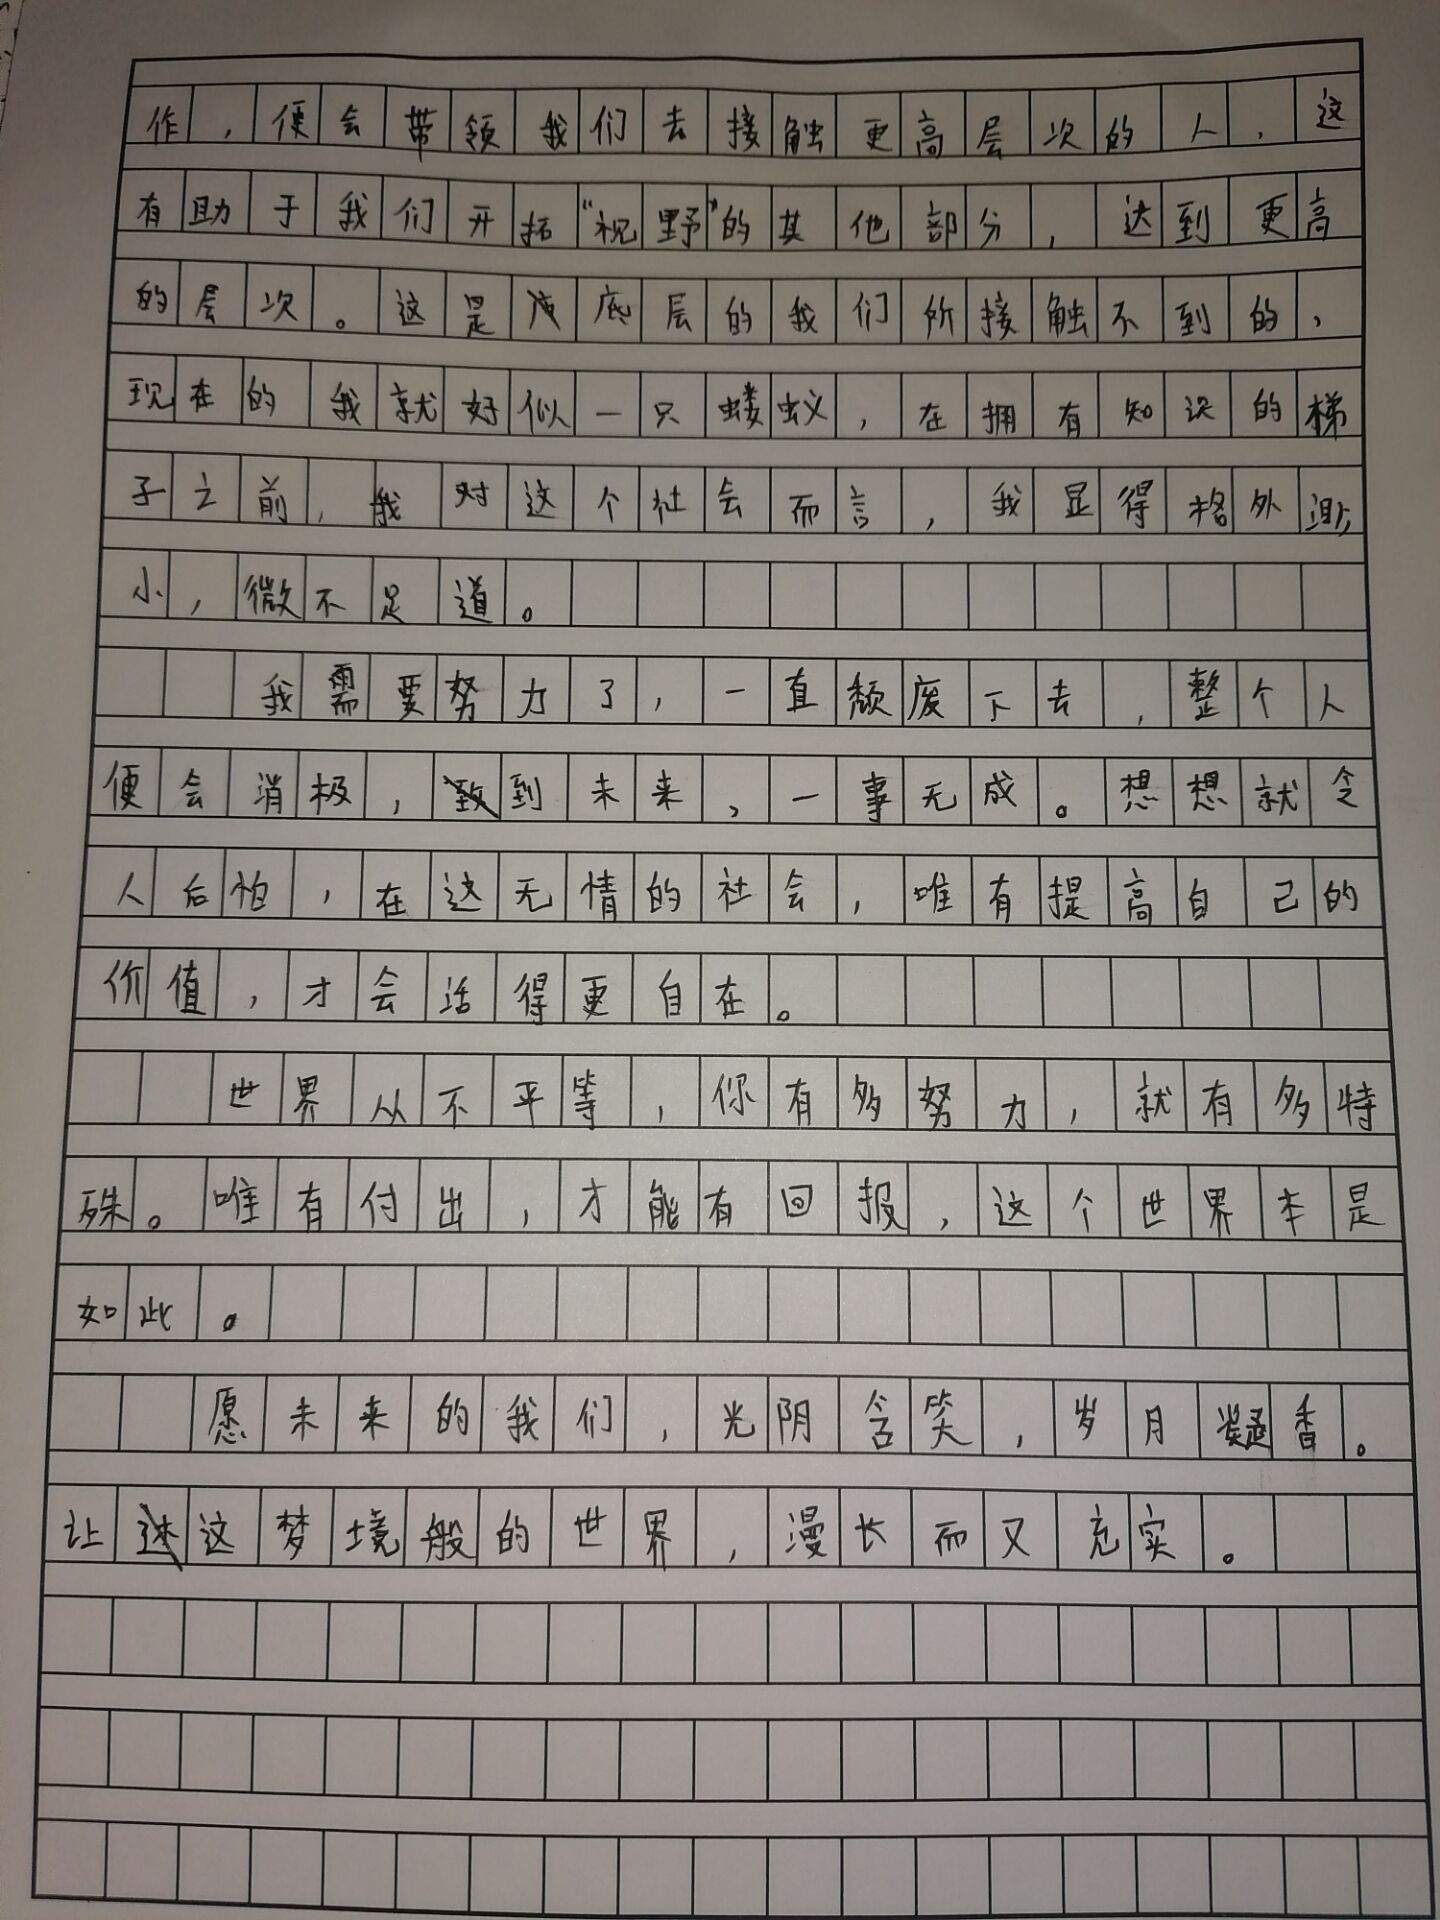 作，便会带领我们去接触更高层次的人，这
有助于我们开拓“视野”的其他部分，达到更高
的层次。这是底层的我们所接触不到的，
现在的我就好似一只蝼蚁，在拥有知识的梯
子之前，我对这个社会而言，我显得格外
小，微不足道。
我需要努力了，一直颓废下去，整个人
便会消极，到未来，一事无成。想想就令
人后怕，在这无情的社会，唯有提高自己的
价值，才会活得更自在。
世界从不平等，你有多努力，就有多特
殊。唯有付出，才能有回报，这个世界本是
如此。
愿未来的我们，光阴含笑，岁月凝香。
让这梦境般的世界，漫长而又充实。